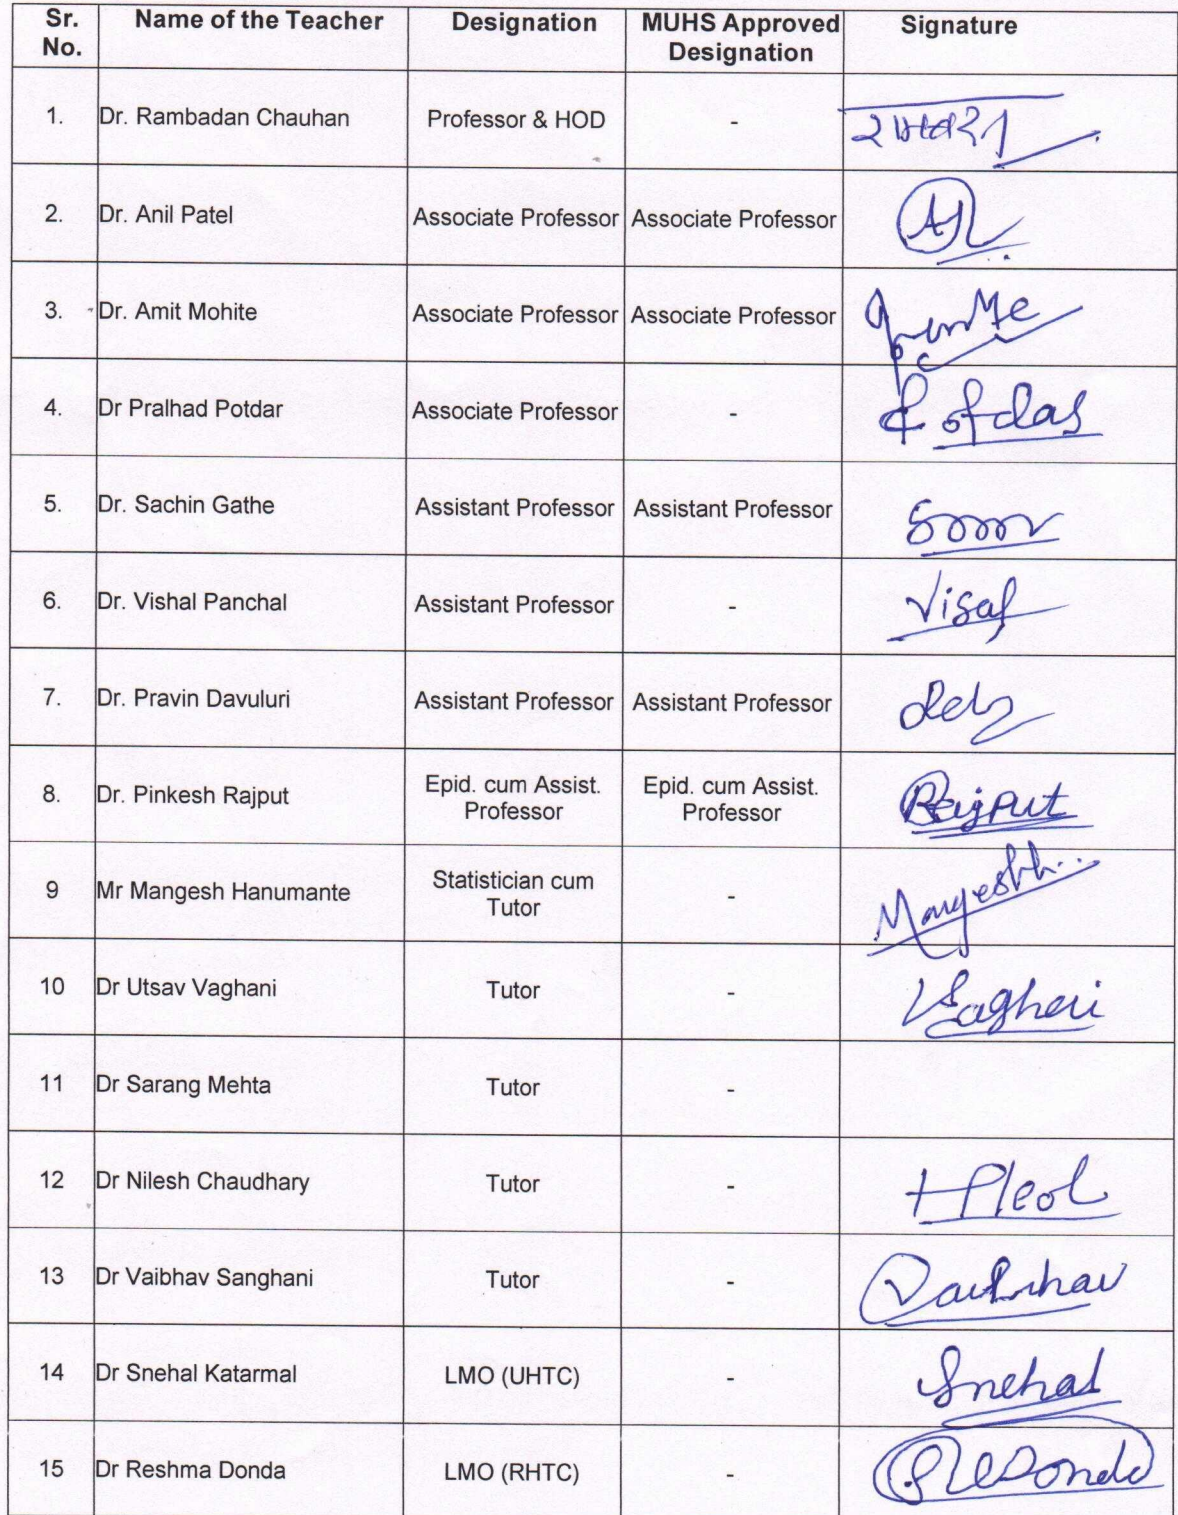 Sr. No. Name of the Teacher Designation MUHS Approved Designation Signature
1. Dr. Rambadan Chauhan Professor & HOD -
2. Dr. Anil Patel Associate Professor Associate Professor
3. Dr. Amit Mohite Associate Professor Associate Professor
4. Dr Pralhad Potdar Associate Professor -
5. Dr. Sachin Gathe Assistant Professor Assistant Professor
6. Dr. Vishal Panchal Assistant Professor - Visal
7. Dr. Pravin Davuluri Assistant Professor Assistant Professor
8. Dr. Pinkesh Rajput Epid. cum Assist. Professor Epid. cum Assist. Professor Rajput
9 Mr Mangesh Hanumante Statistician cum Tutor - Mangeshh..
10 Dr Utsav Vaghani Tutor -
11 Dr Sarang Mehta Tutor -
12 Dr Nilesh Chaudhary Tutor -
13 Dr Vaibhav Sanghani Tutor - Vaibhav
14 Dr Snehal Katarmal LMO (UHTC) - Snehal
15 Dr Reshma Donda LMO (RHTC) -